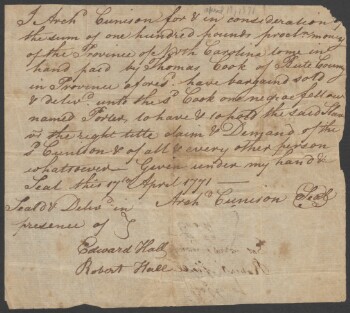 I Archd Cunison for & in consideration of
the sum of one hundred pounds proclm money
of the Province of North Carolina to me in
hand paid by Thomas Cook of Bute County
in Province aforesd have bargaind sold
& delivd unto the sd Cook one negroe fellow
named Porter to have & to hold the said Slave
vs the right title Claim & Demand of the
sd Cunison & of all & every other person
whatsoever — Given under my hand &
Seal this 17th April 1771 —
Seald & Delivd in Archd Cunison Seal
presence of
Edward Hall
Robert Hall